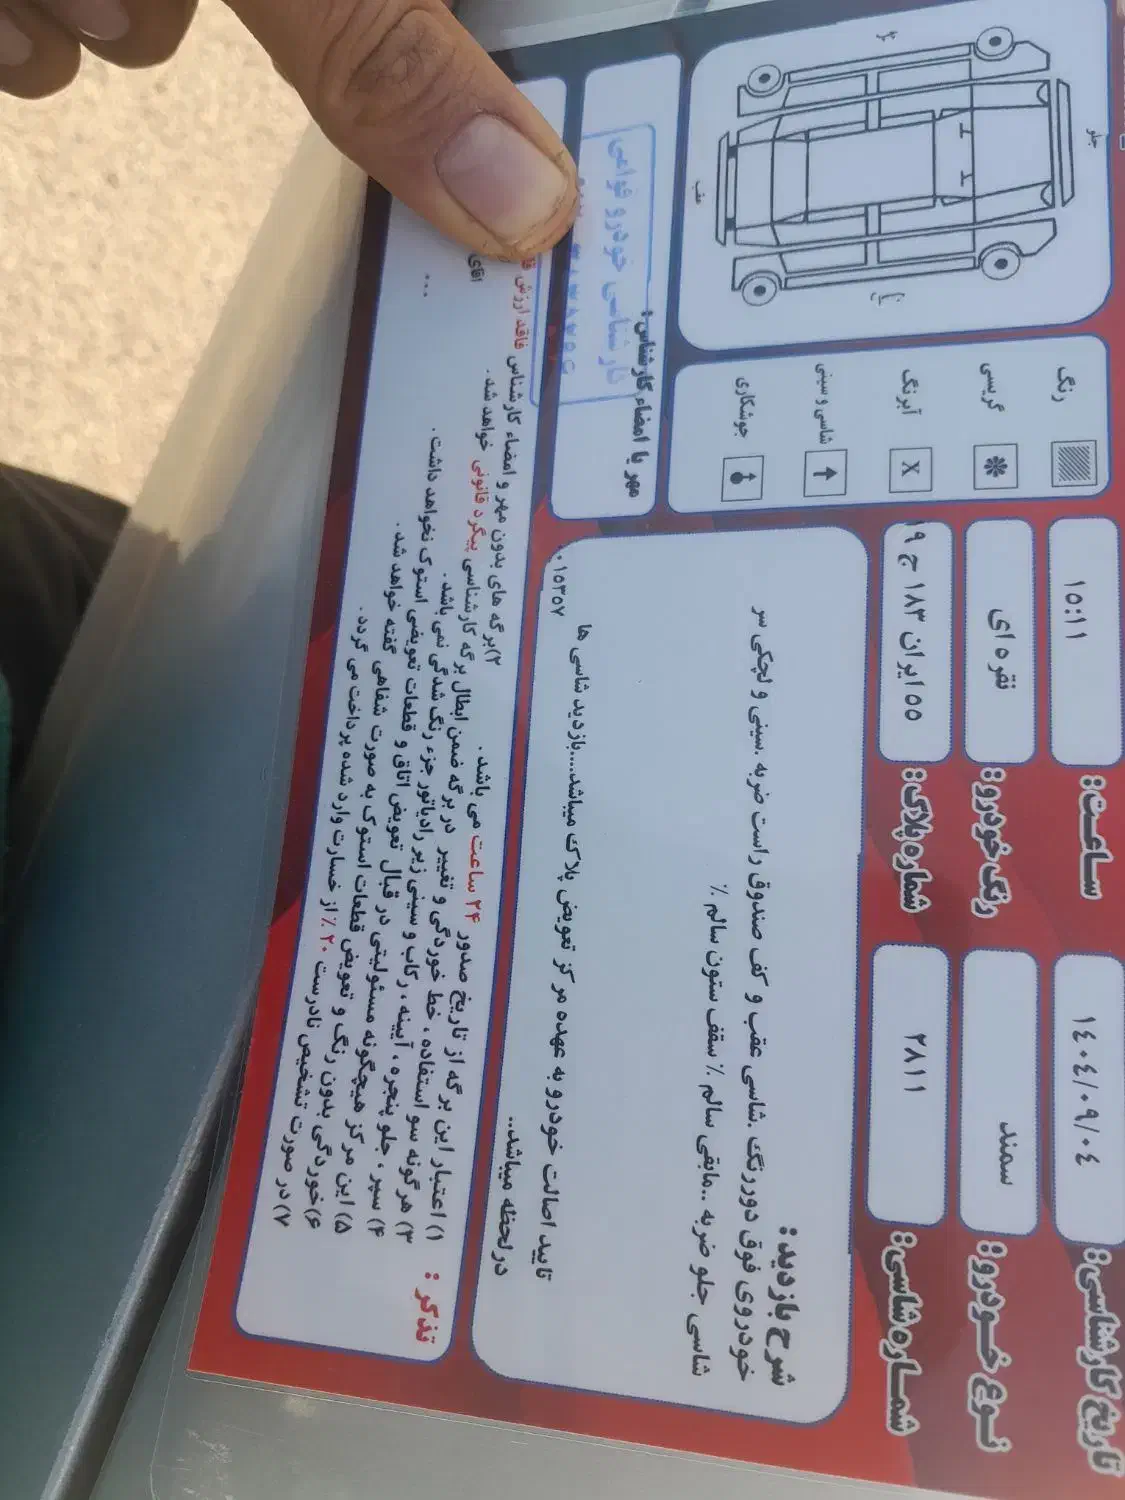 تاریخ کارشناسی: ١٤٠٤/٠٩/٠٤
ساعت: ١٥:١١
نوع خودرو: سمند
رنگ خودرو: نقره ای
شماره شاسی: ٢٨١١
شماره پلاک: ٥٥ ایران ١٨٣ ج ١٩
شرح بازدید:
خودروی فوق دوررنگ .شاسی عقب و کف صندوق راست ضربه .سینی و لچکی سر
شاسی جلو ضربه ..مابقی سالم ٪ سقف ستون سالم ٪
تایید اصالت خودرو به عهده مرکز تعویض پلاک میباشد....بازدید شاسی ها
درلحظه میباشد..
٠١٥٣٥٧
رنگ
گریسی
آبرنگ X
شاسی و سینی
جوشکاری
جلو
عقب
مهر یا امضاء کارشناس:
کارشناسی خودرو
تذکر :
۱) اعتبار این برگه از تاریخ صدور ۲۴ ساعت می باشد .
۲)برگه های بدون مهر و امضاء کارشناس فاقد ارزش
۳) هرگونه سو استفاده ، خط خوردگی و تغییر در برگه ضمن ابطال برگه کارشناسی پیگرد قانونی خواهد شد .
۴) سپر ، جلو پنجره ، آیینه ، رکاب و سینی زیر رادیاتور جزء رنگ شدگی نمی باشد .
۵) این مرکز هیچگونه مسئولیتی در قبال تعویض اتاق و قطعات تعویضی استوک نخواهد داشت .
۶)خوردگی بدون رنگ و تعویض قطعات استوک به صورت شفاهی گفته خواهد شد .
۷)در صورت تشخیص نادرست ۲۰٪ از خسارت وارد شده پرداخت می گردد .
آقای
...